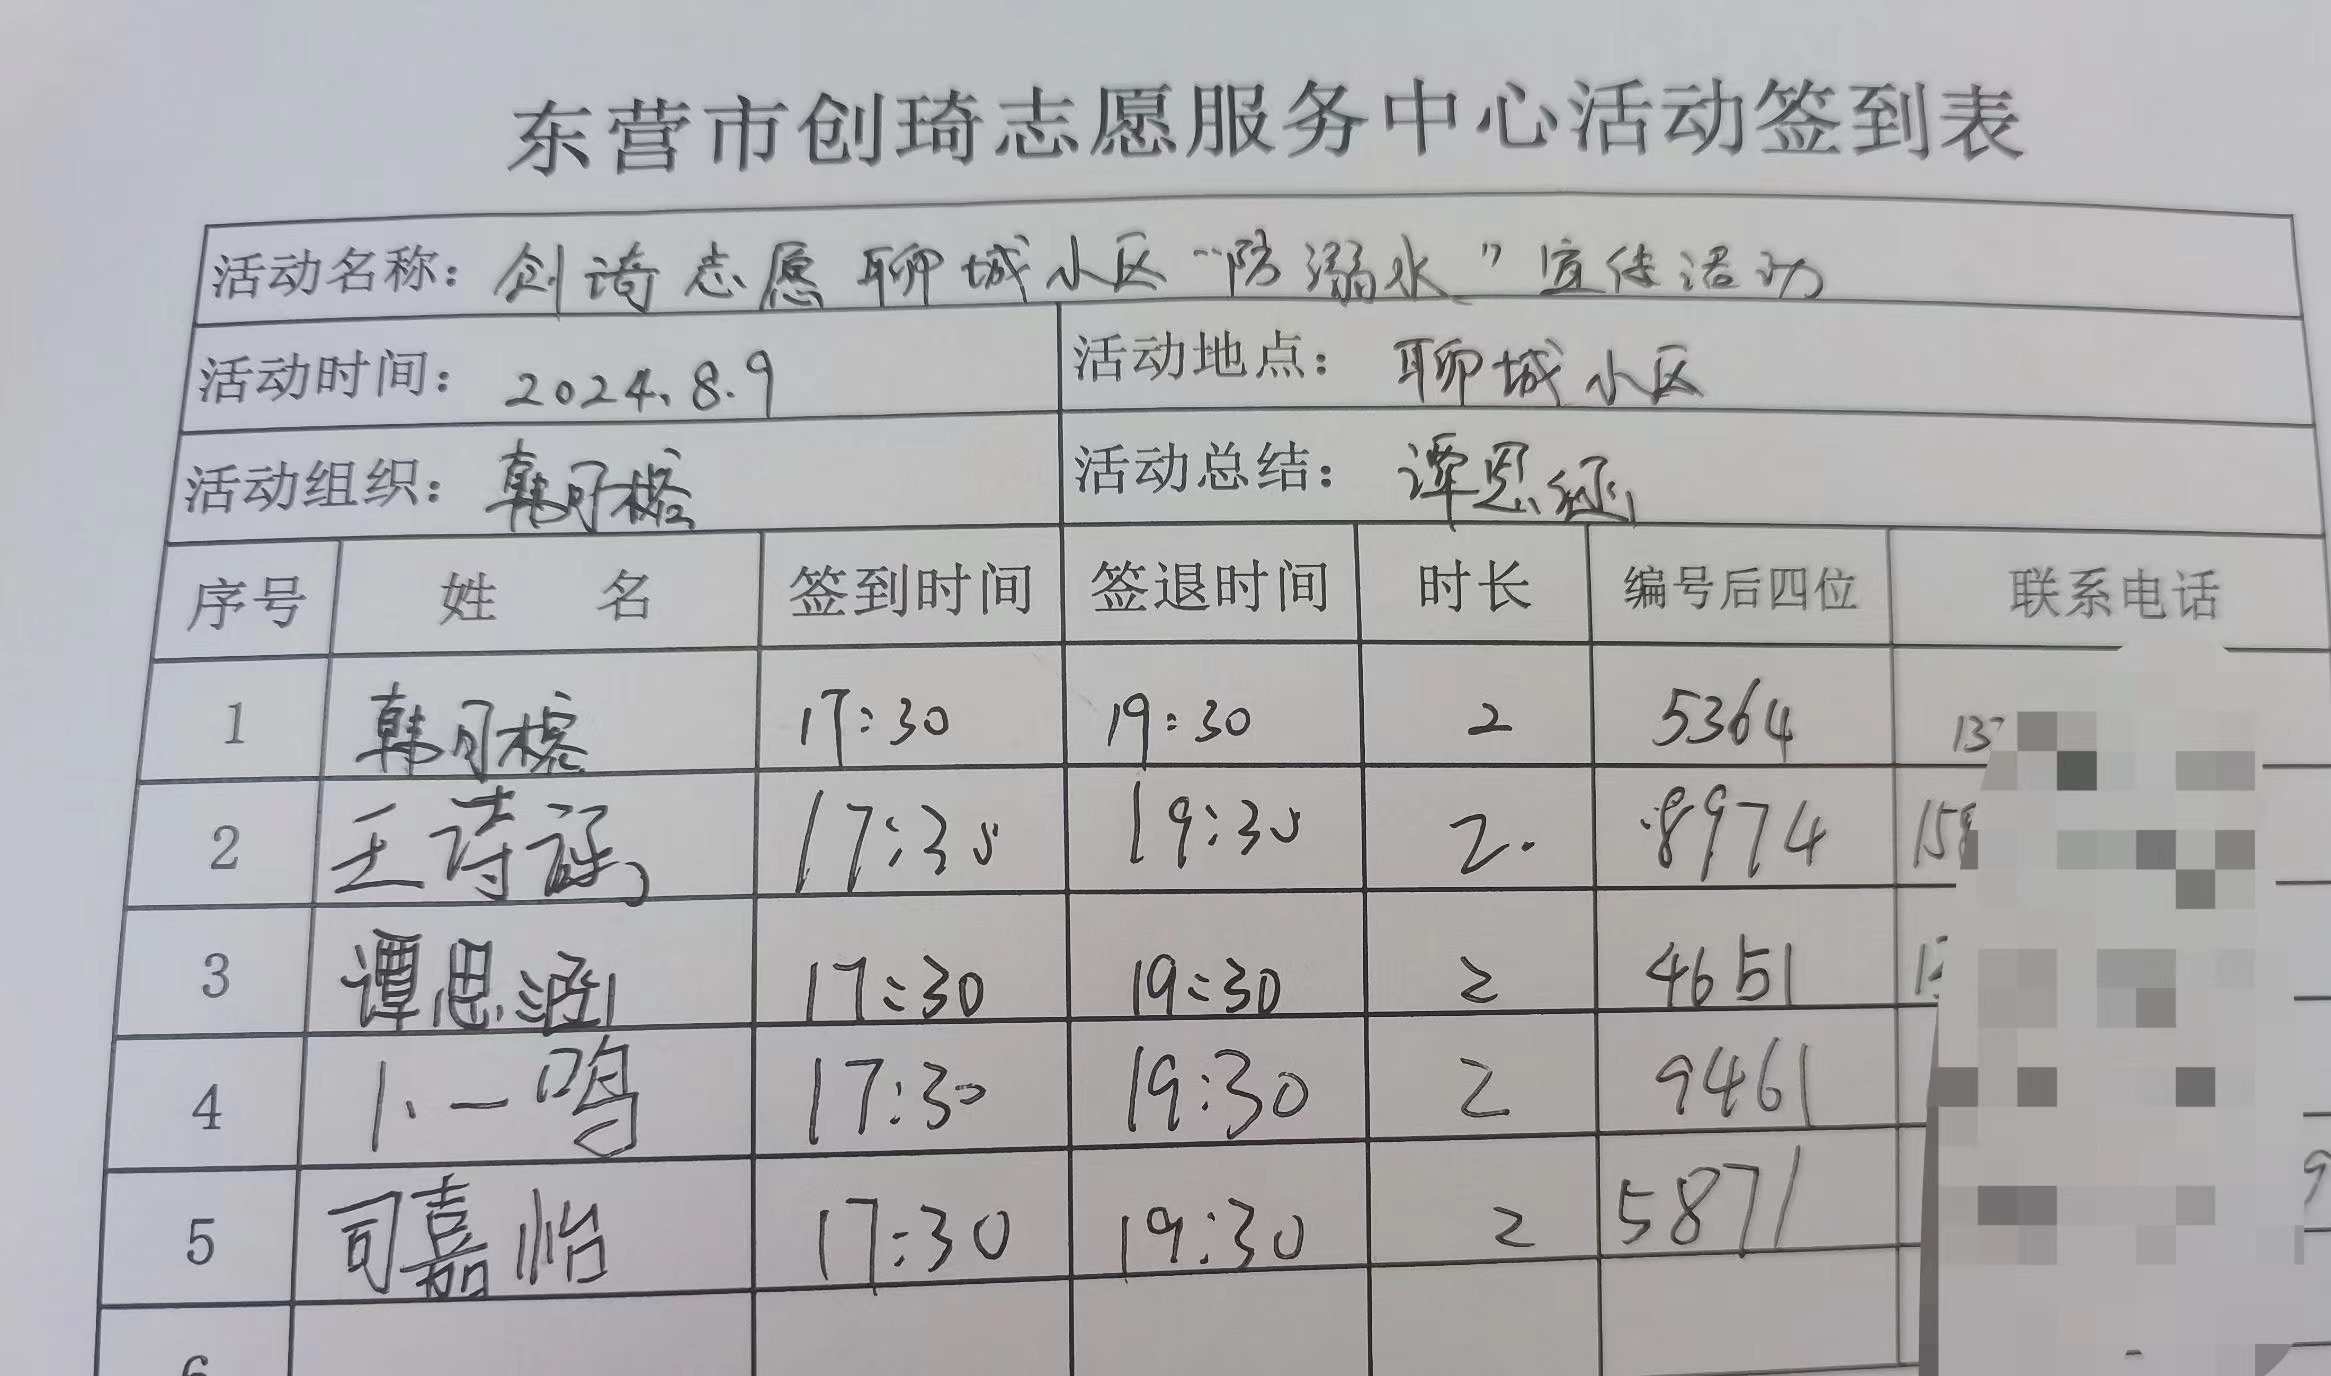 东营市创琦志愿服务中心活动签到表
活动名称：创琦志愿聊城小区“防溺水”宣传活动
活动时间：2024.8.9 活动地点：聊城小区
活动组织：韩月榕 活动总结：谭思涵
序号 姓名 签到时间 签退时间 时长 编号后四位 联系电话
1 韩月榕 17:30 19:30 2 5364 137
2 王诗涵 17:30 19:30 2. 8974 15
3 谭思涵 17:30 19:30 2 4651 1
4 卜一鸣 17:30 19:30 2 9461
5 司嘉怡 17:30 19:30 2 5871 9
6